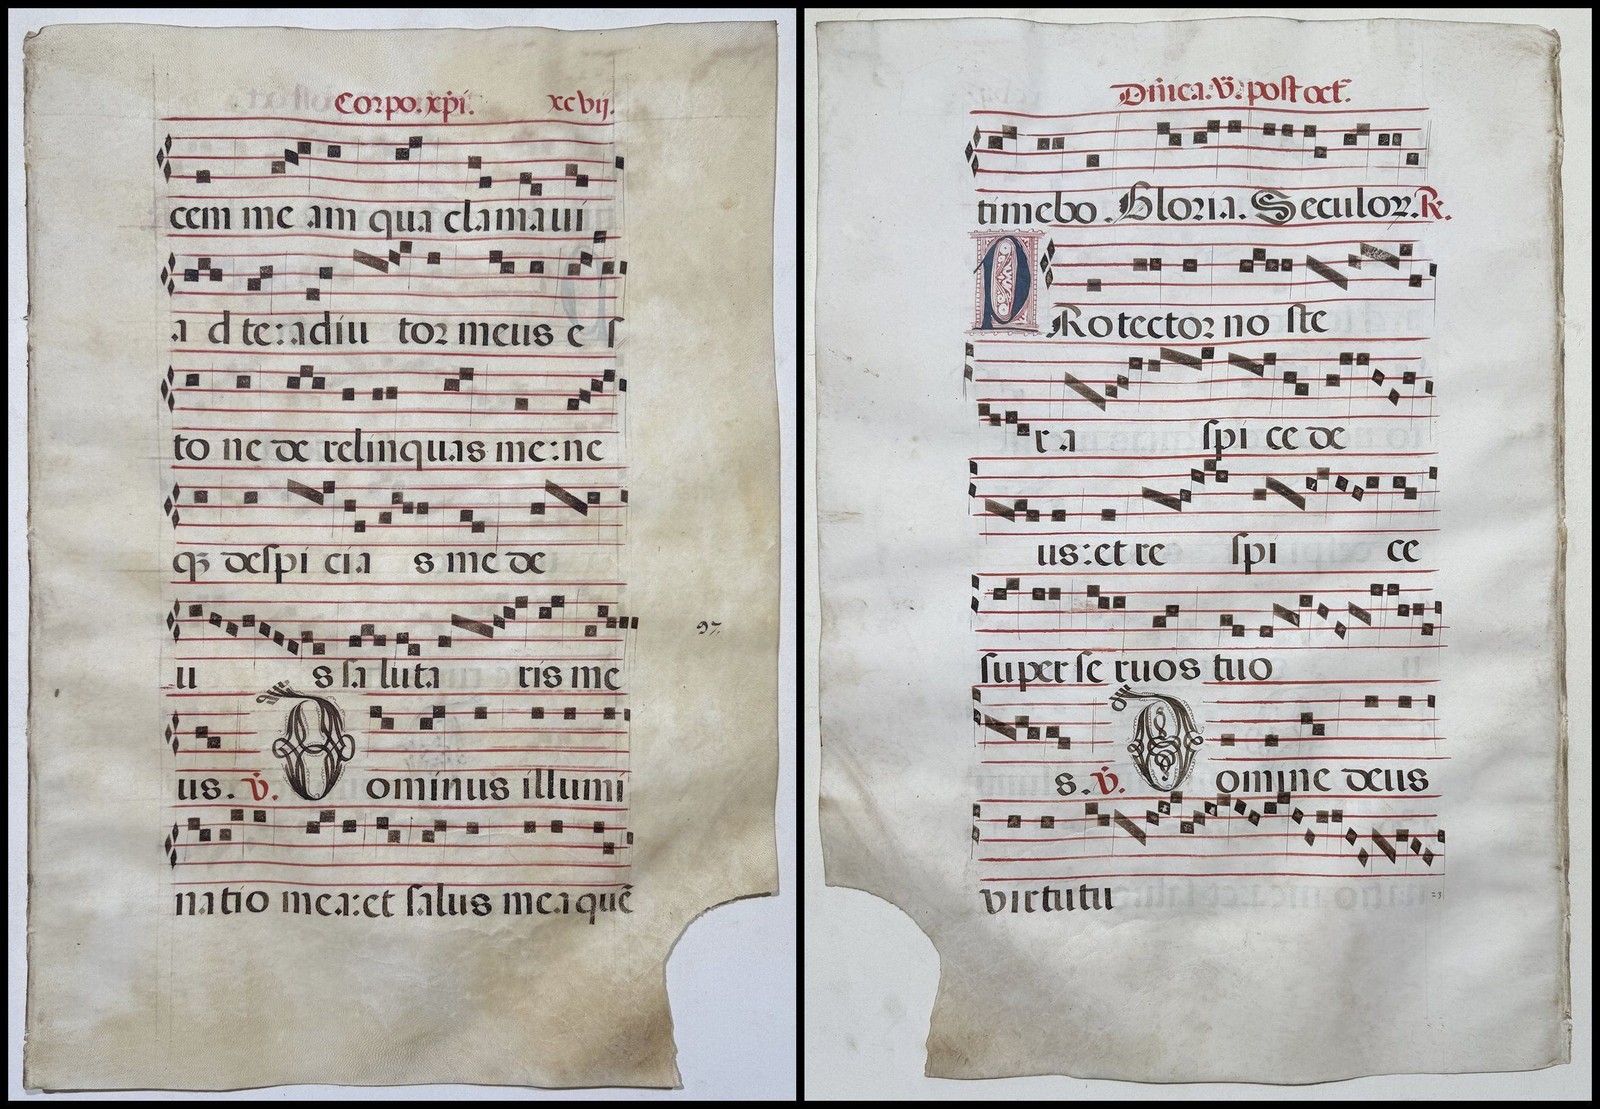 Corpo. xp̄i. xcvij.
cem me am qua clamaui
a d te: adiu tor meus e s
to ne de relinquas me: ne
qȝ despi cia s me de
u s sa luta ris me
97.
us. V̇. Dominus illumi
natio mea: et salus mea quē
Dn̄ica. V̄. post oct̄.
timebo. Gloria. Seculoꝝ. R.
PRotector no ste
r a spi ce de
us: et re spi ce
super se ruos tuo
s. V̇. Domine deus
virtutu